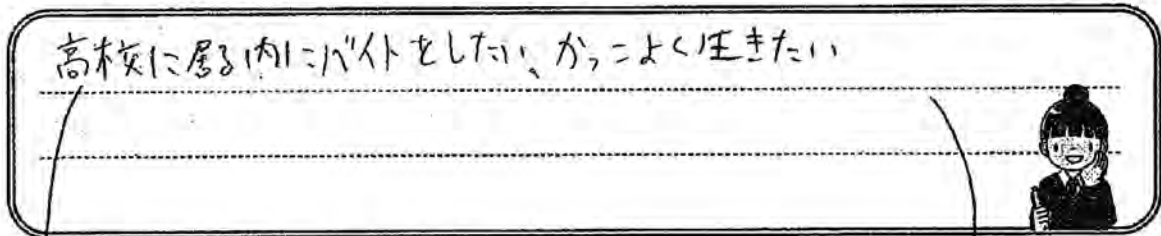 高校に居る内にバイトをしたい、かっこよく生きたい